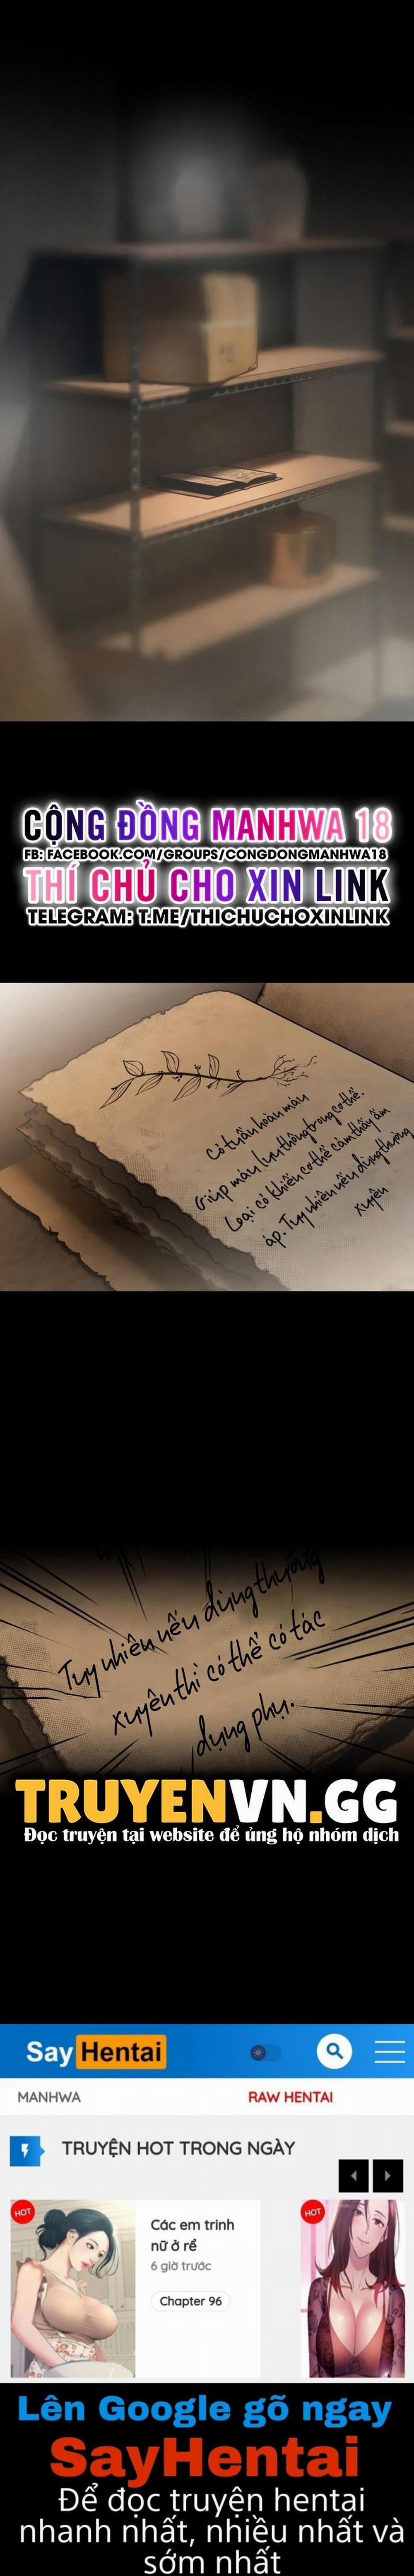 CỘNG ĐỒNG MANHWA 18
FB: FACEBOOK.COM/GROUPS/CONGDONGMANHWA18
THÍ CHỦ CHO XIN LINK
TELEGRAM: T.ME/THICHUCHOXINLINK
Cỏ tuần hoàn máu
Giúp máu lưu thông trong cơ thể.
Loại cỏ khiến cơ thể cảm thấy ấm
áp. Tuy nhiên nếu dùng thường
xuyên
Tuy nhiên nếu dùng thường
xuyên thì có thể có tác
dụng phụ.
TRUYENVN.GG
Đọc truyện tại website để ủng hộ nhóm dịch
Say Hentai
MANHWA RAW HENTAI
TRUYỆN HOT TRONG NGÀY
HOT
Các em trinh
nữ ở rể
6 giờ trước
Chapter 96
HOT
Lên Google gõ ngay
SayHentai
Để đọc truyện hentai
nhanh nhất, nhiều nhất và
sớm nhất